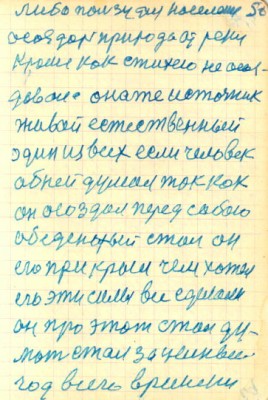 либо ползутся население 56
осоздал природа от реки
Кроме как стихею не осоз-
давал она те источник
живой естественный
один из всех если человек
об ней думал так как
он создал перед собою
обеденный стол он
его прикрыл чем хотел
его эти силы все сделали
он про этот стол ду-
мать стал за целый
год всего времени